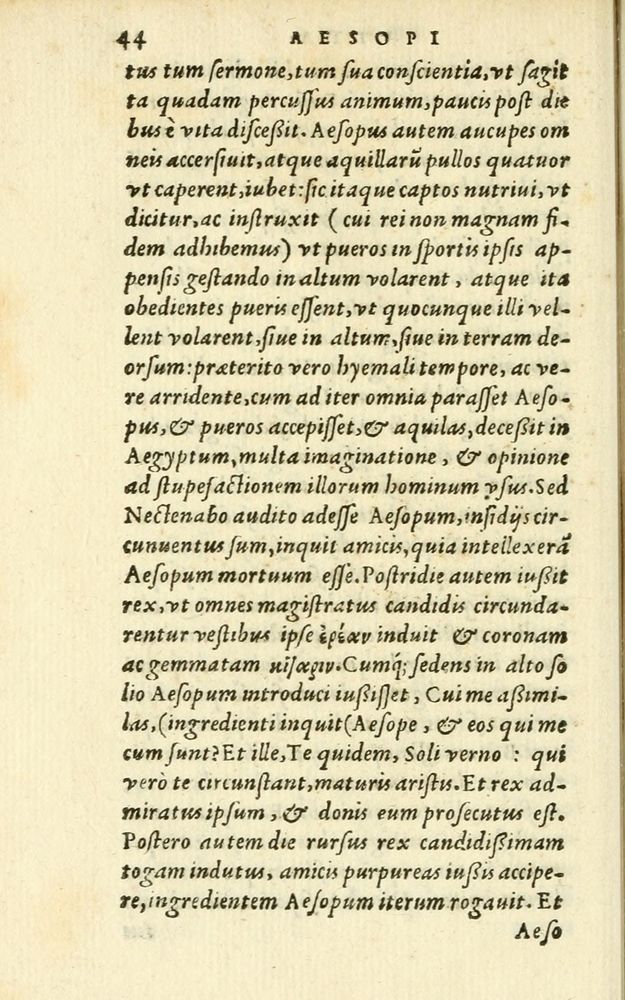 44 AESOPI
tus tum ſermone, tum ſua conſcientia, vt ſagit
ta quadam percuſſus animum, paucis poſt die
bus è vita diſceßit. Aeſopus autem aucupes om
neis accerſiuit, atque aquillarũ pullos quatuor
vt caperent, iubet: ſic itaque captos nutriui, vt
dicitur, ac inſtruxit (cui rei non magnam fi-
dem adhibemus) vt pueros in ſportis ipſis ap-
penſis geſtando in altum volarent, atque ita
obedientes pueris eſſent, vt quocunque illi vel-
lent volarent, ſiue in altum, ſiue in terram de-
orſum: præterito vero hyemali tempore, ac ve-
re arridente, cum ad iter omnia paraſſet Aeſo-
pus, & pueros accepiſſet, & aquilas, deceßit in
Aegyptum, multa imaginatione, & opinione
ad ſtupefactionem illorum hominum vſus. Sed
Nectenabo audito adeſſe Aeſopum, inſidijs cir-
cunuentus ſum, inquit amicis, quia intellexerã
Aeſopum mortuum eſſe. Poſtridie autem iußit
rex, vt omnes magiſtratus candidis circunda-
rentur veſtibus ipſe ἐρέαν induit & coronam
ac gemmatam κίδαριν. Cumq́; ſedens in alto ſo
lio Aeſopum introduci iußiſſet, Cui me aßimi-
las, (ingredienti inquit (Aeſope, & eos qui me
cum ſunt? Et ille, Te quidem, Soli verno : qui
verò te circunſtant, maturis ariſtis. Et rex ad-
miratus ipſum, & donis eum proſecutus eſt.
Poſtero autem die rurſus rex candidißimam
togam indutus, amicis purpureas iußis accipe-
re, ingredientem Aeſopum iterum rogauit. Et
Aeſo